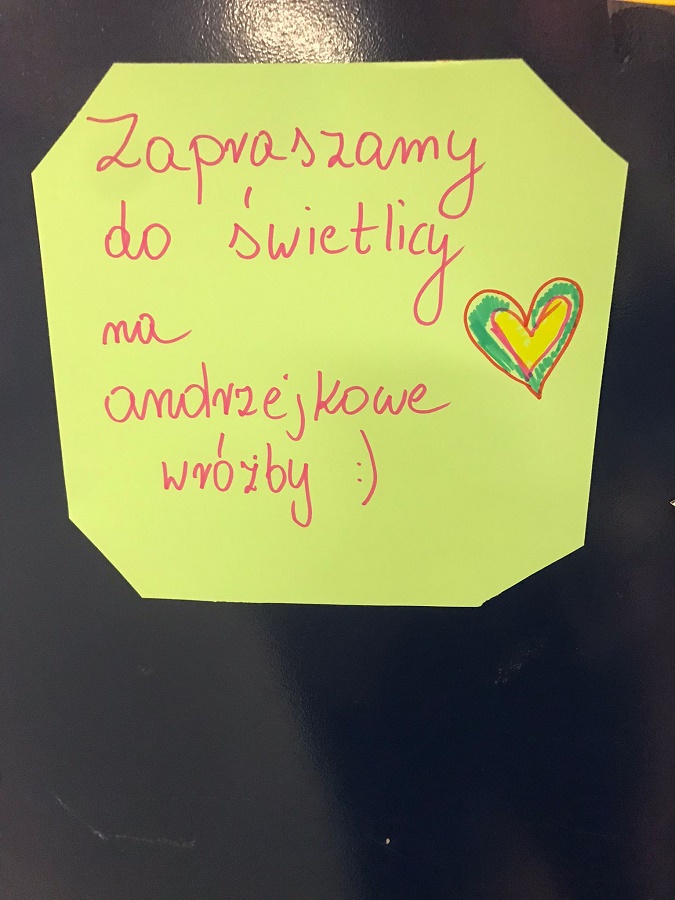 Zapraszamy
do świetlicy
na
andrzejkowe
wróżby :)